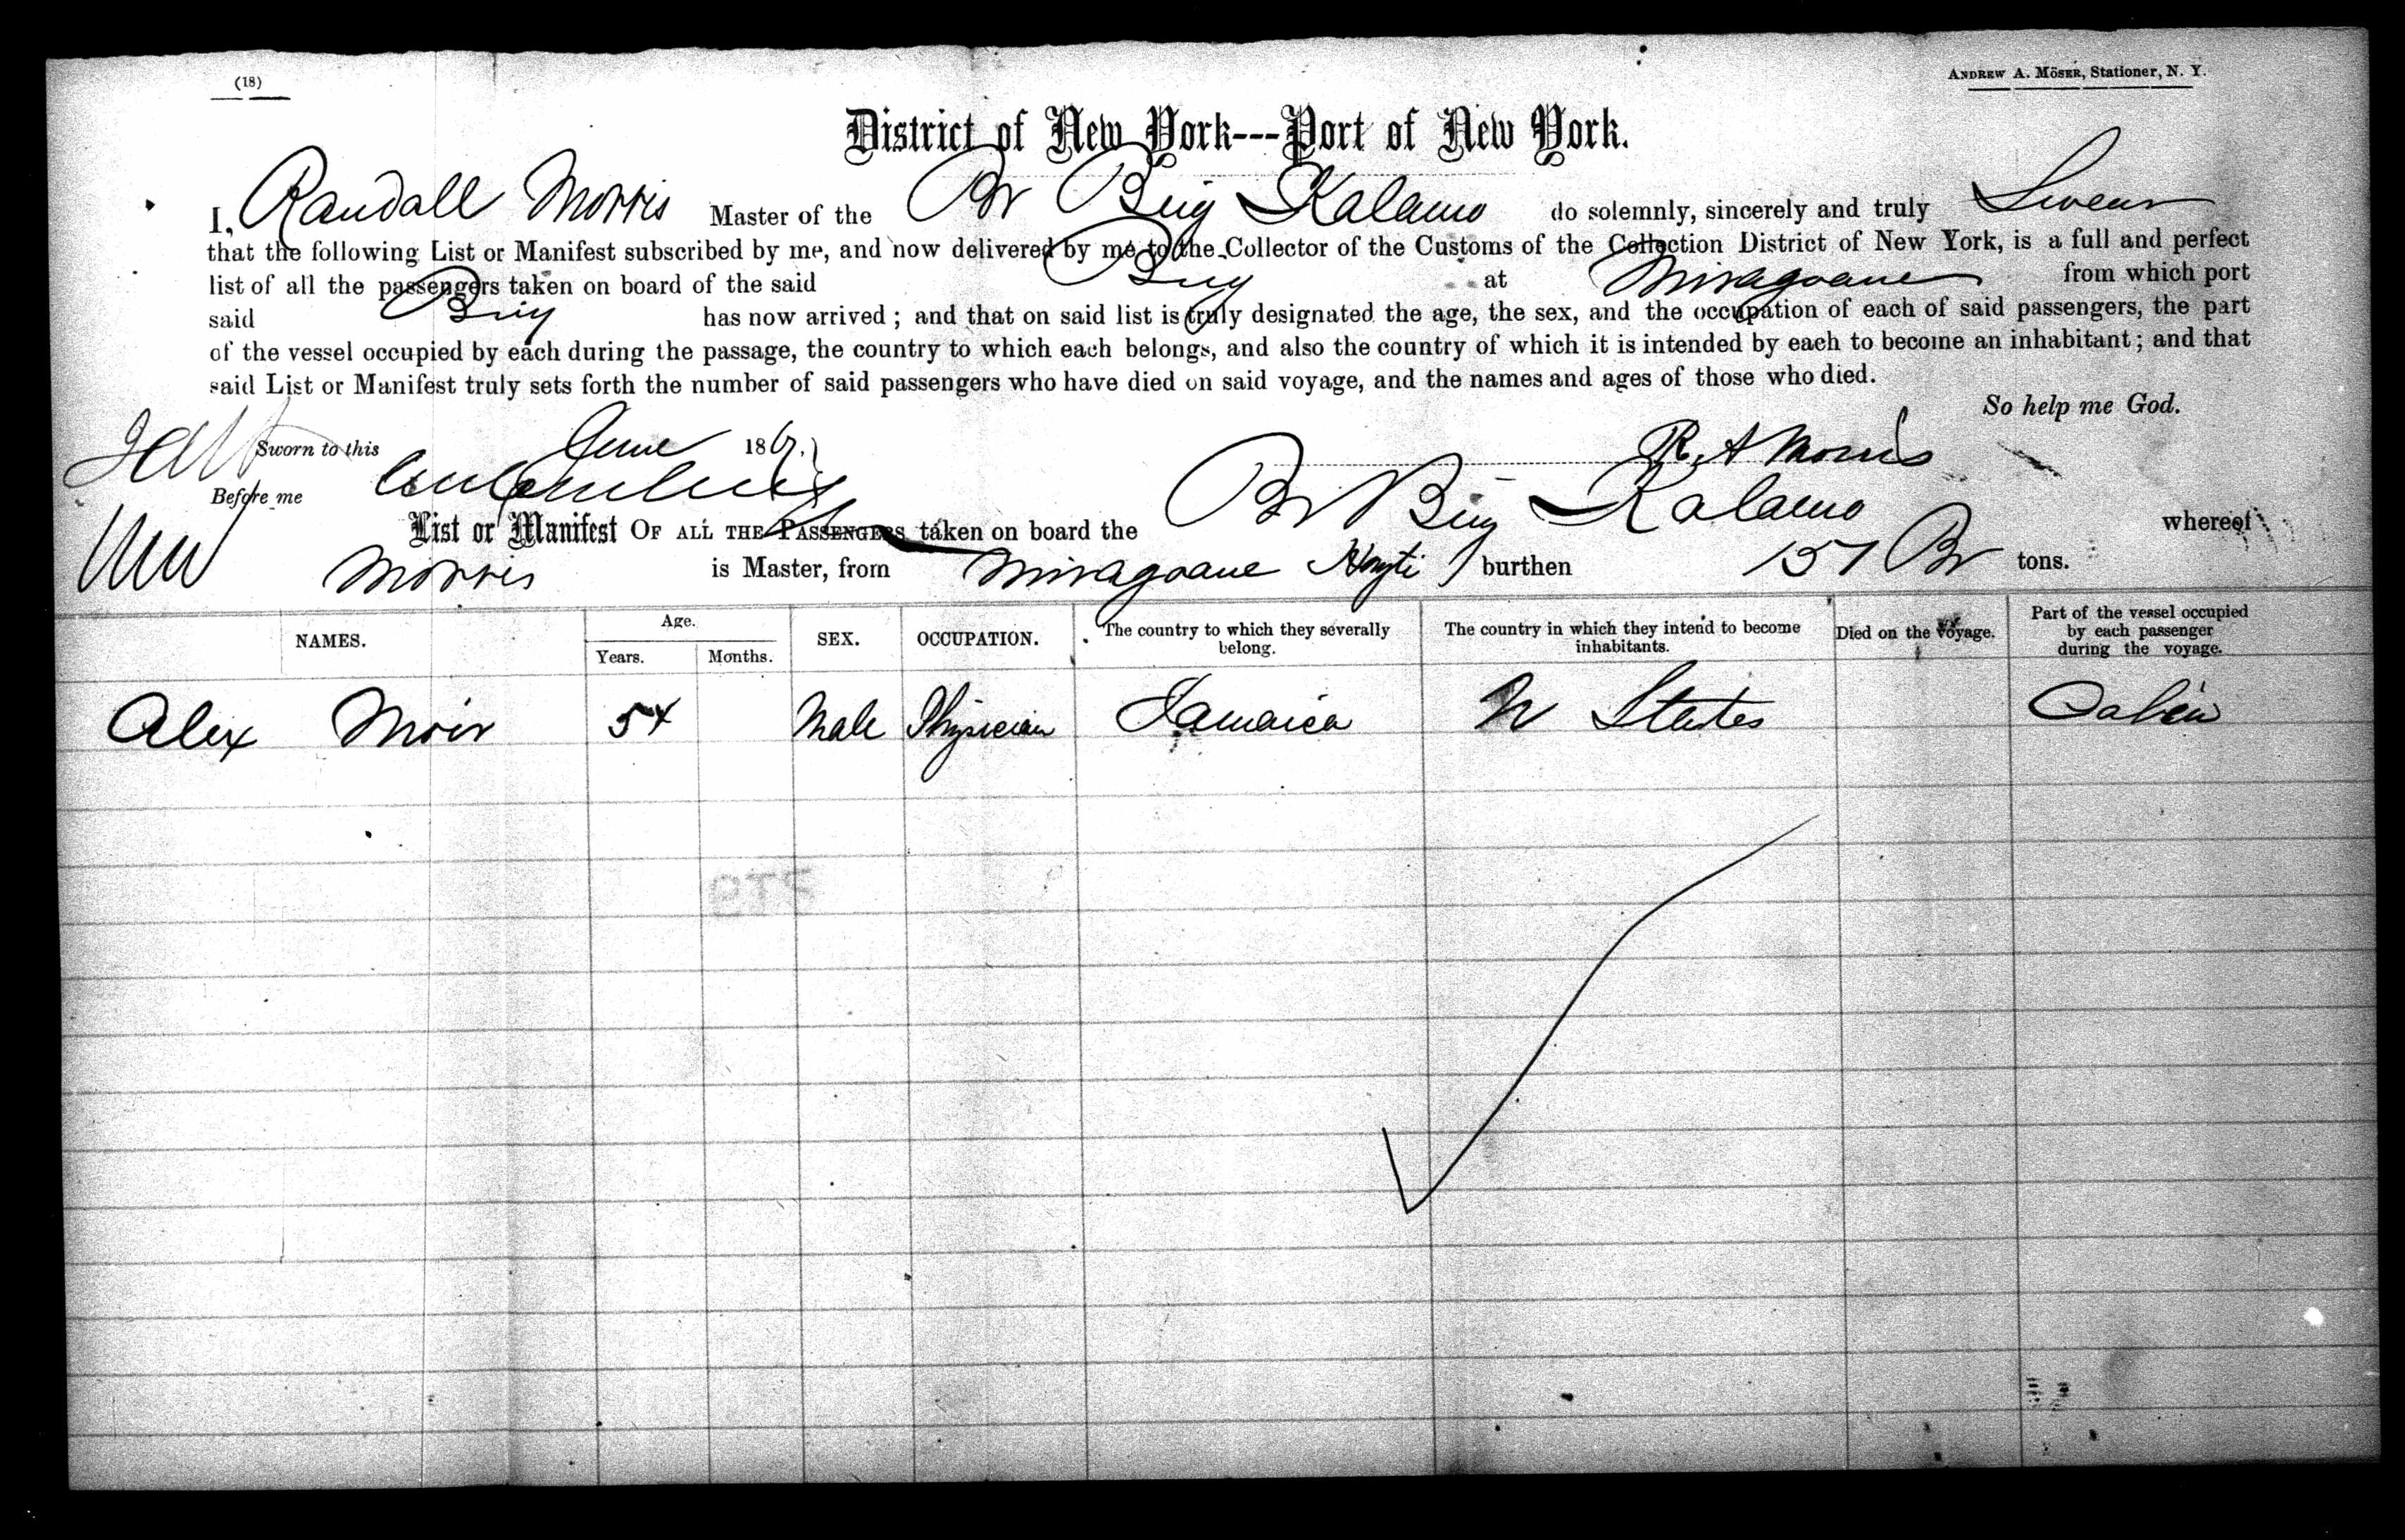 (18)
ANDREW A. MÖSER, Stationer, N. Y.
District of New York---Port of New York.
I, Randall Morris Master of the Br Brig Kalamo do solemnly, sincerely and truly Swear
that the following List or Manifest subscribed by me, and now delivered by me to the Collector of the Customs of the Collection District of New York, is a full and perfect
list of all the passengers taken on board of the said Brig at Miragoane from which port
said Brig has now arrived; and that on said list is truly designated the age, the sex, and the occupation of each of said passengers, the part
of the vessel occupied by each during the passage, the country to which each belongs, and also the country of which it is intended by each to become an inhabitant; and that
said List or Manifest truly sets forth the number of said passengers who have died on said voyage, and the names and ages of those who died.
So help me God.
Sworn to this June 186
R. A Morris
Before me
List or Manifest OF ALL THE PASSENGERS taken on board the Br Brig Kalamo whereof
Morris is Master, from Miragoane Hayti burthen 157 Br tons.
NAMES.
Age.
Years.
Months.
SEX.
OCCUPATION.
The country to which they severally belong.
The country in which they intend to become inhabitants.
Died on the voyage.
Part of the vessel occupied by each passenger during the voyage.
Alex Moir 54 Male Physician Jamaica U States Cabin